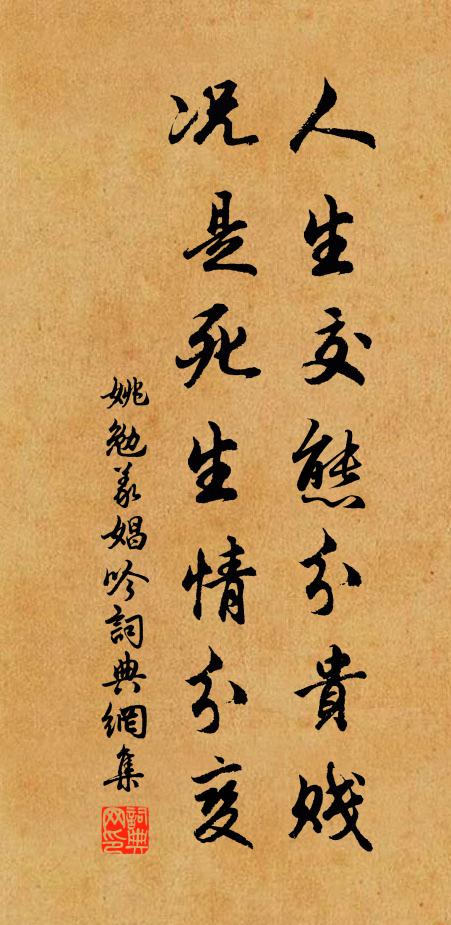 人生交態分貴賤
况是死生情分变
姚勉義娼吟詞典網集
詞典網印